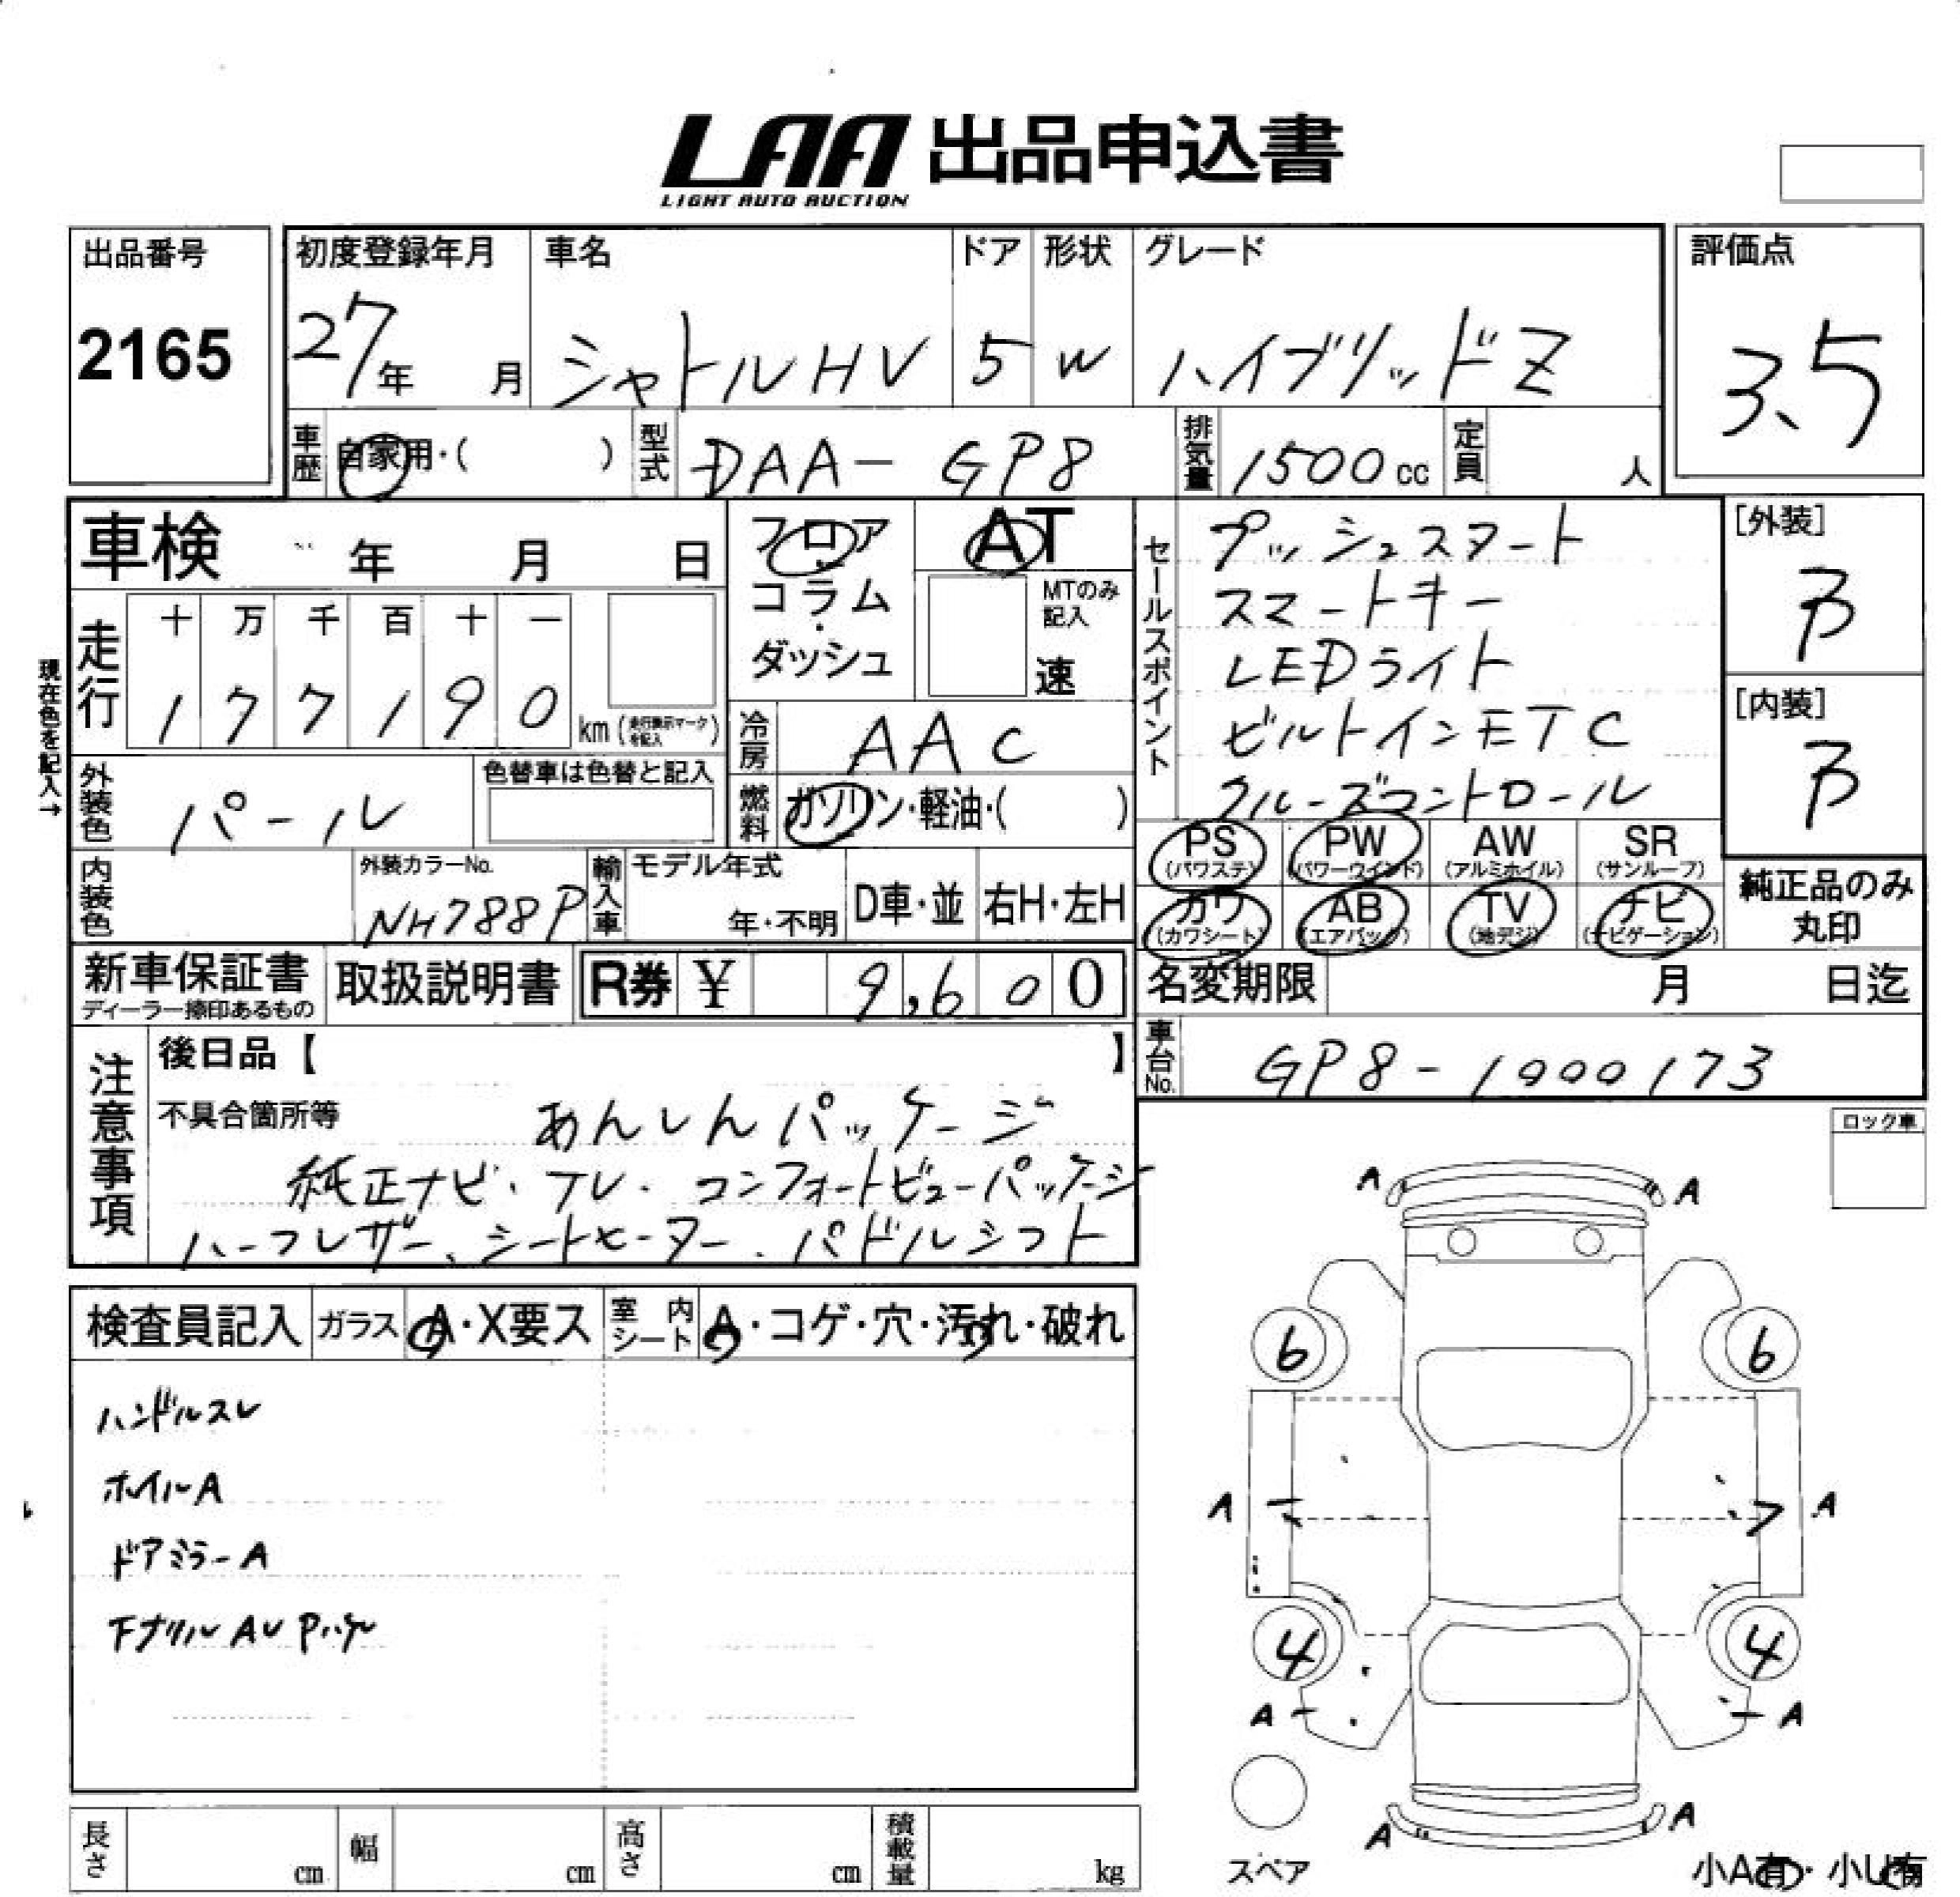 LAA 出品申込書
LIGHT AUTO AUCTION
出品番号
2165
初度登録年月
27年 月
車名
シャトルHV
ドア
5
形状
W
グレード
ハイブリッドZ
評価点
3.5
車歴
自家用・( )
型式
DAA-GP8
排気量
1500cc
定員
人
車検 年 月 日
フロア
コラム
・
ダッシュ
AT
MTのみ
記入
速
セールスポイント
プッシュスタート
スマートキー
LEDライト
ビルトインETC
クルーズコントロール
[外装]
B
[内装]
B
現在色を記入→
走行
十 万 千 百 十 一
1 7 7 1 9 0 km
冷房
AAC
燃料
ガソリン・軽油・( )
外装色
パール
色替車は色替と記入
内装色
外装カラーNo.
NH788P
輸入車
モデル年式
年・不明
D車・並
右H・左H
PS
(パワステ)
PW
(パワーウインド)
AW
(アルミホイル)
SR
(サンルーフ)
カワ
(カワシート)
AB
(エアバック)
TV
(地デジ)
ナビ
(ナビゲーション)
純正品のみ
丸印
新車保証書
ディーラー捺印あるもの
取扱説明書
R券 ¥ 9,600
名変期限 月 日迄
車台No.
GP8-1000173
注意事項
後日品【 】
不具合箇所等
あんしんパッケージ
純正ナビ・TV・コンフォートビューパッケージ
ハーフレザー、シートヒーター、パドルシフト
ロック車
検査員記入
ガラス
A・X要ス
室内
シート
A・コゲ・穴・汚れ・破れ
ハンドルスレ
ホイルA
ドアミラーA
A A
6 6
A A
4 4
A A
A A
スペア
小A有・小U有
長さ cm
幅 cm
高さ cm
積載量 kg